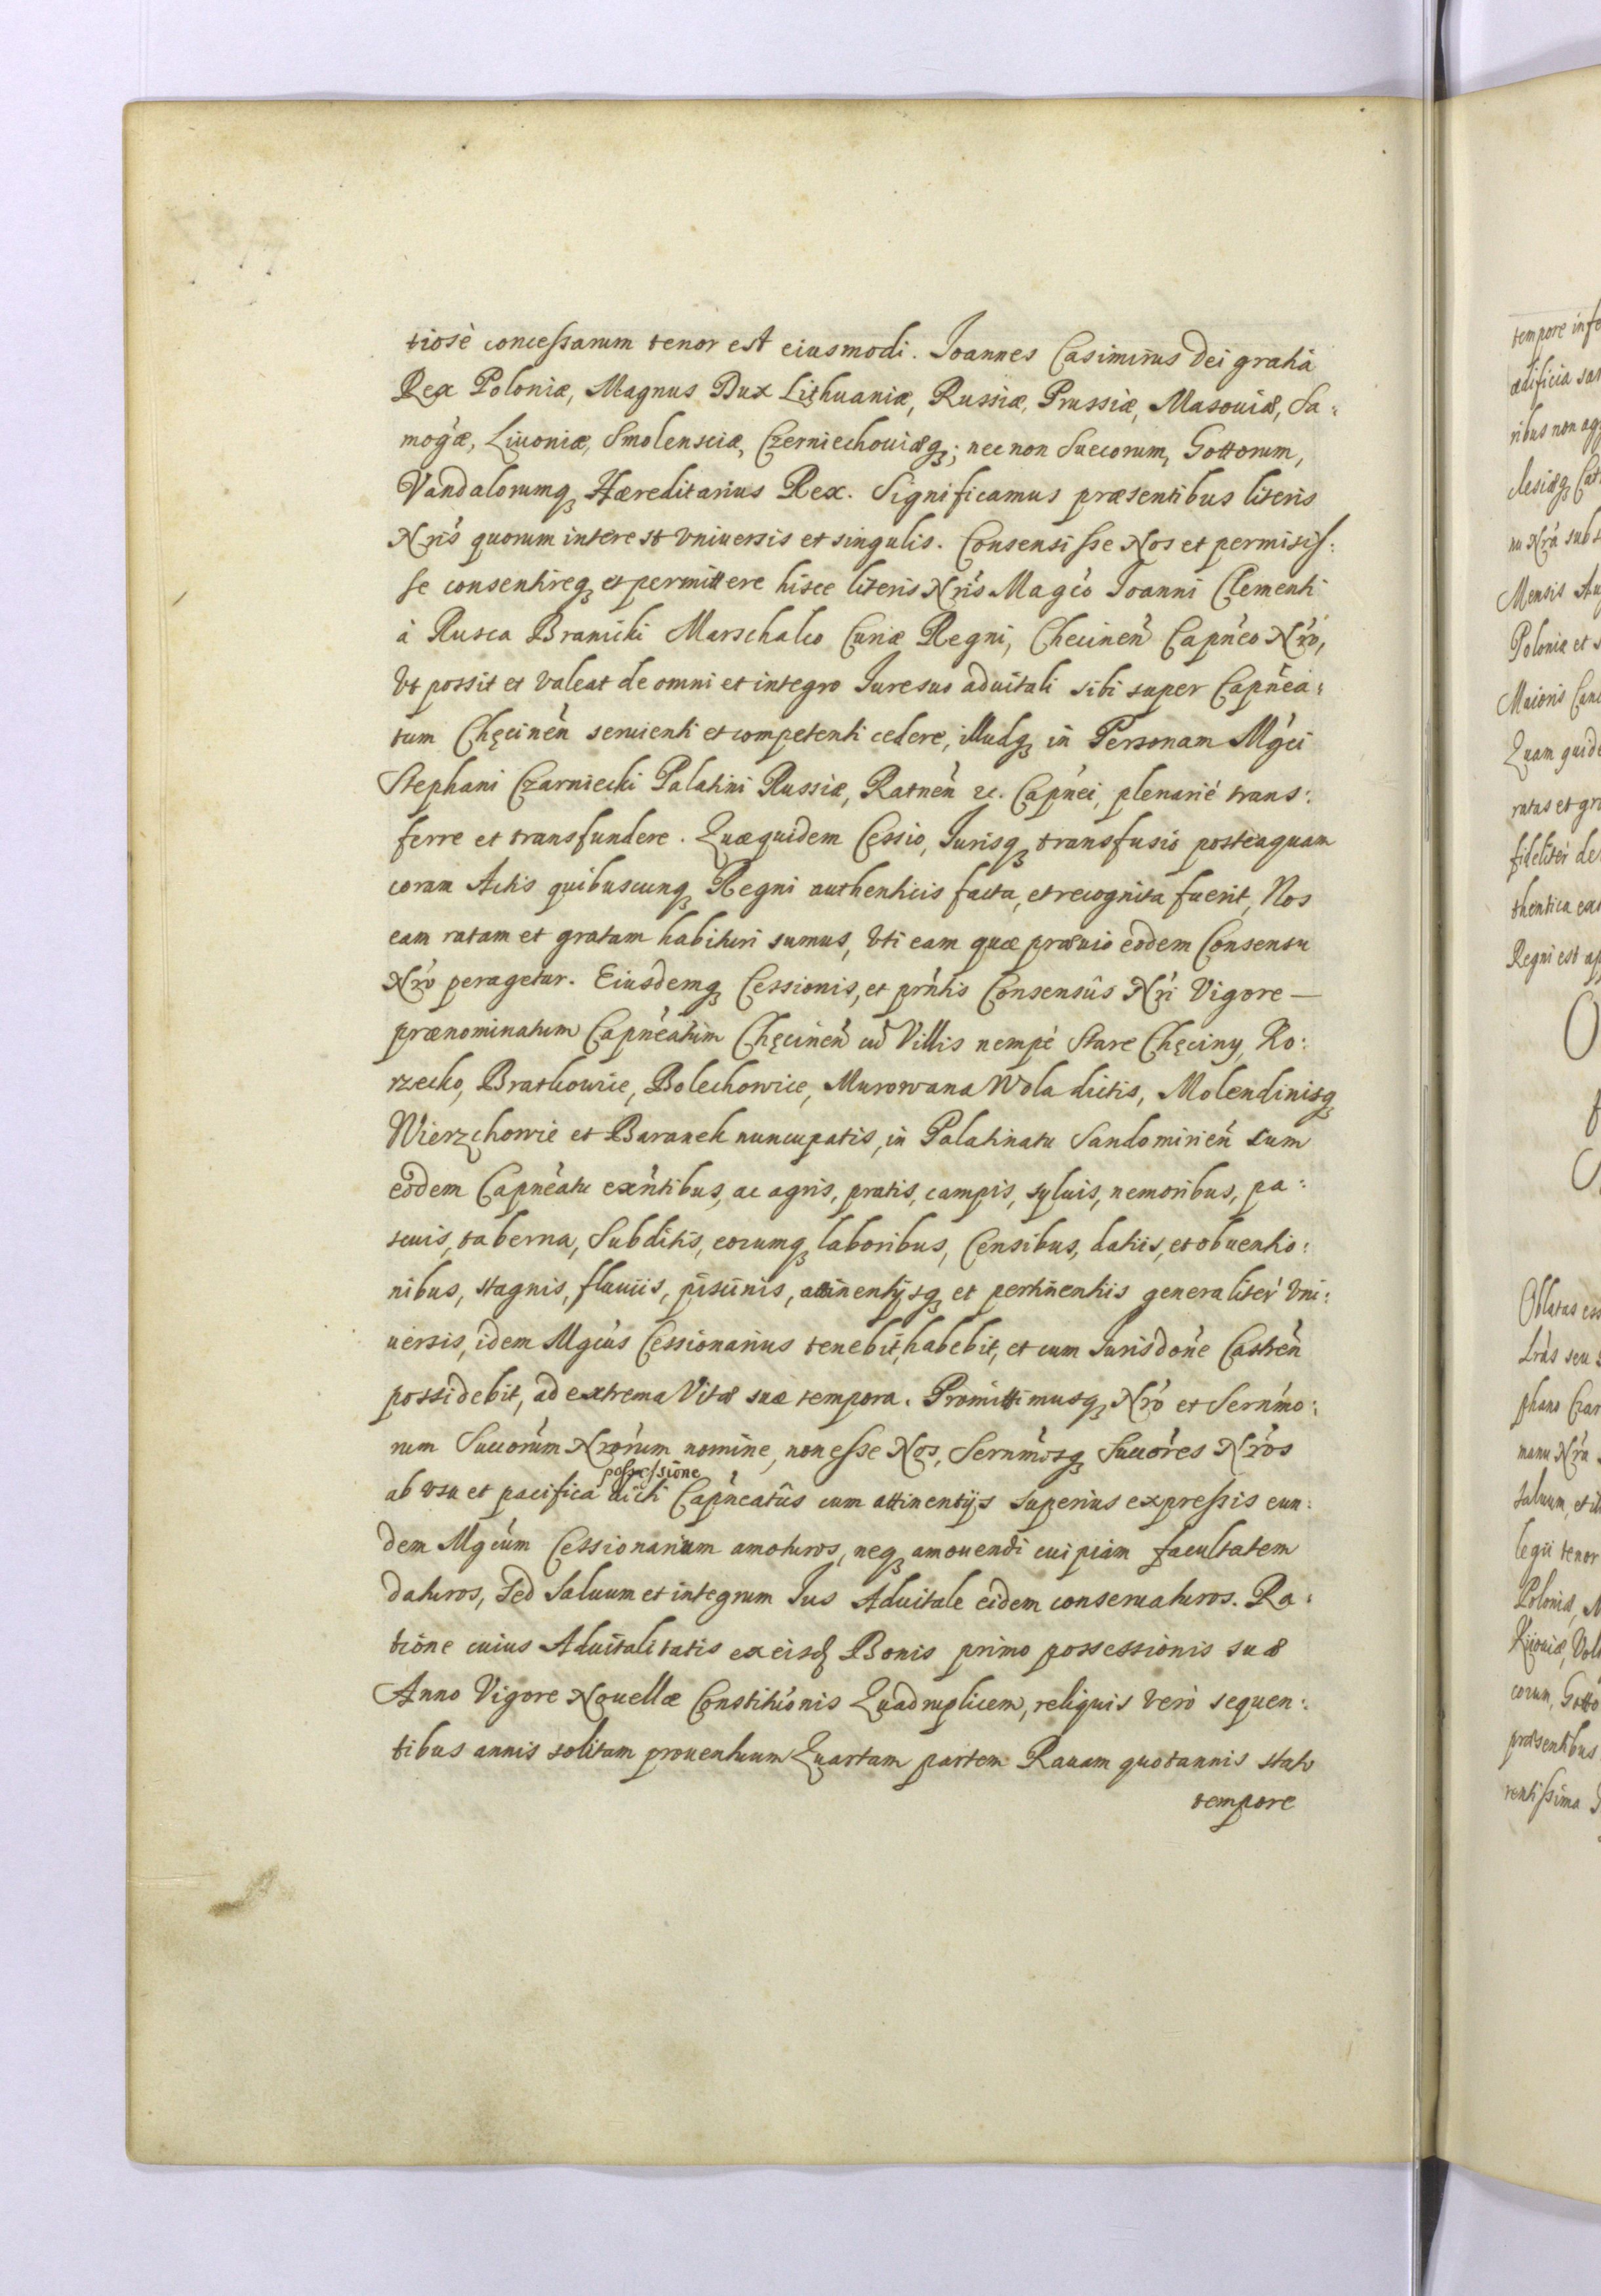 tiosè concessarum tenor est eiusmodi. Joannes Casimirus Dei gratiâ
Rex Poloniæ, Magnus Dux Lithuaniæ, Russiæ, Prussiæ, Masouiæ, Sa:
mog̃æ, Liuoniæ, Smolensciæ, Czerniechouiæq; nec non Suecorum, Gottorum,
Vandalorumq Hæreditarius Rex. Significamus præsentibus literis
Nris̃ quorum interest vniuersis et singulis. Consensisse Nos et permisis:
se consentireq et permittere hisce literis Nris̃ Magc̃o Joanni Clementi
à Rusca Branicki Marschalco Curiæ Regni, Checineñ Capñeo Nr̃o,
Vt possit et valeat de omni et integro Jure suo aduitali sibi super Capñea:
tum Chęcineñ seruienti et competenti cedere, illudq in Personam Mg̃ci
Stephani Czarniecki Palatini Russiæ, Ratneñ &c. Capñei, plenariè trans:
ferre et transfundere. Quæquidem Cessio, Jurisq transfusio posteaquam
coram Actis quibuscunq Regni authenticis facta, et recognita fuerit, Nos
eam ratam et gratam habituri sumus, vti eam quæ præuio eodem Consensu
Nr̃o peragetur. Eiusdemq Cessionis, et prñtis Consensûs Nr̃i Vigore —
prænominatum Capñeatum Chęcineñ cũ Villis nempè Stare Chęciny, Ko:
rzecko, Bratkowice, Bolechowice, Murowana Wola dictis, Molendinisq
Wierzchowie et Baranek nuncupatis, in Palatinatu Sandomirień cum
eodem Capñeatu exñtibus, ac agris, pratis, campis, syluis, nemoribus, pa:
scuis, taberna, Subditis, eorumq laboribus, Censibus, datiis, et obuentio:
nibus, stagnis, fluuiis, piscinis, attinentijsq et pertinentiis generaliter Vni:
uersis, idem Mgc̃us Cessionarius tenebit, habebit, et cum Jurisdõne Castreñ
possidebit, ad extrema Vitæ suæ tempora. Promittimusq Nr̃o et Serñmo:
rum Succorũm Nrorũm nomine, non esse Nos, Serñmosq Succõres Nr̃os
possessione
ab vsu et pacifica dicti Capñeatûs cum attinentijs superius expressis eun:
dem Mgc̃um Cessionarium amoturos, neq amouendi cuipiam facultatem
daturos, sed saluum et integrum Jus Aduitale eidem conseruaturos. Ra:
tione cuius Aduitalitatis ex eisd Bonis primo possessionis suæ
Anno Vigore Nouellæ Constitũonis Quadruplicem, reliquis verò sequen:
tibus annis solitam prouentuum Quartam partem Rauam quotannis stato
tempore